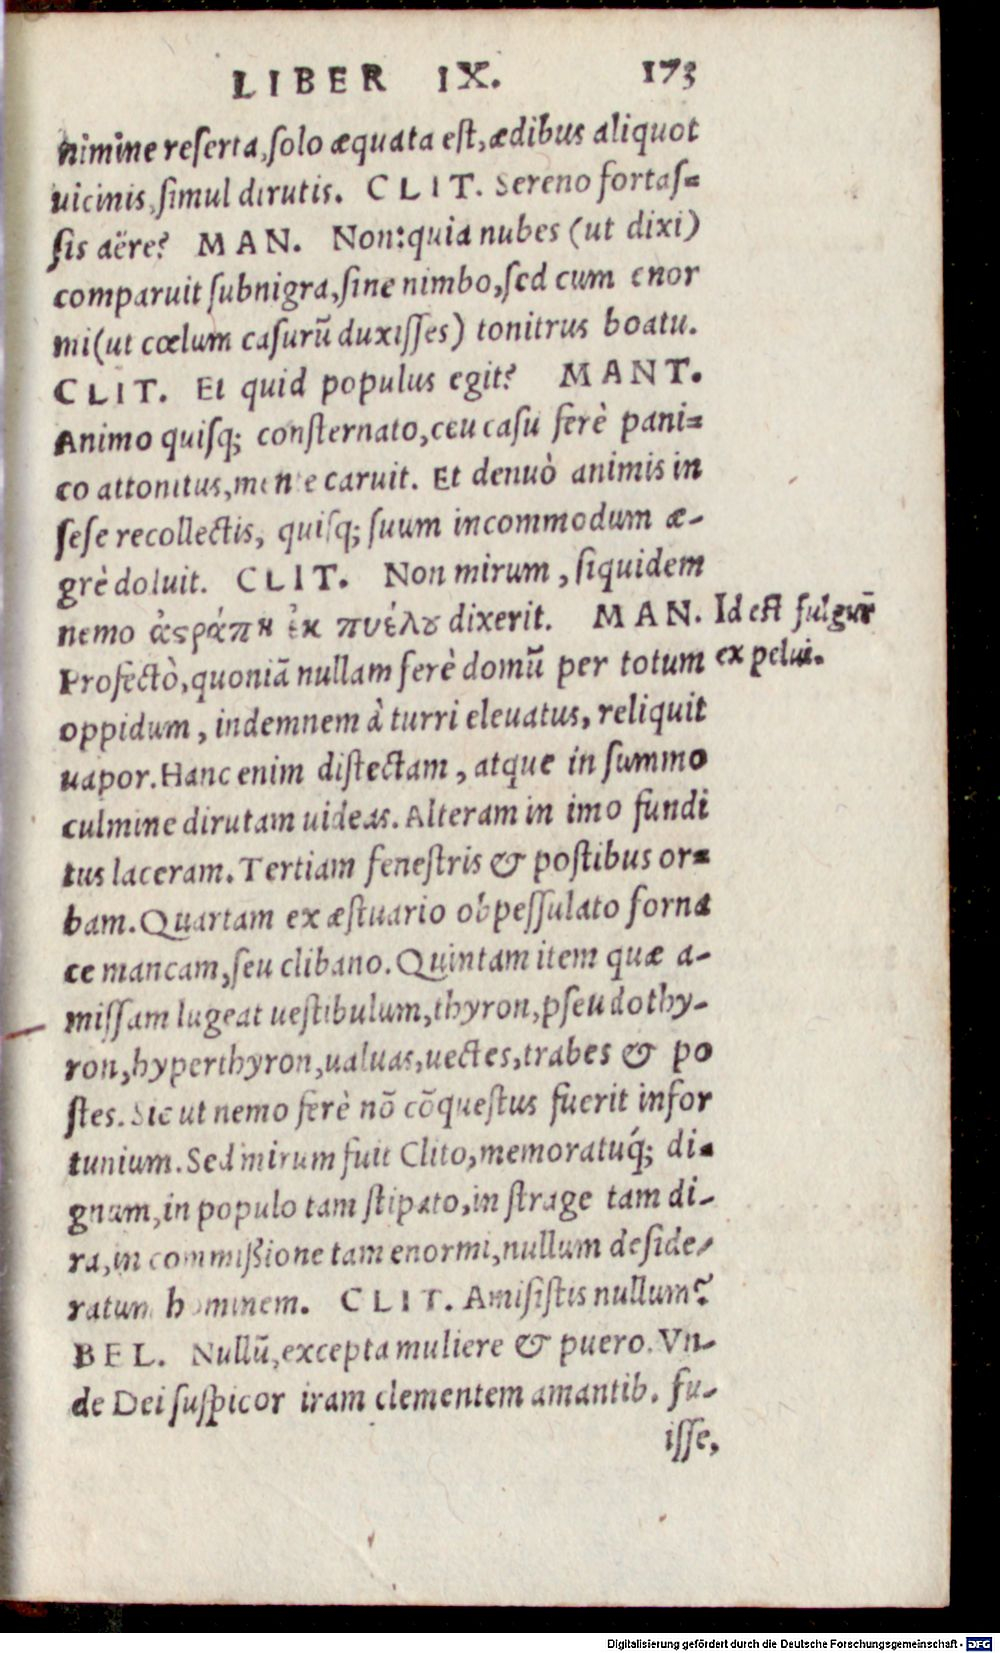 LIBER IX. 173
nimine reserta, solo æquata est, ædibus aliquot
uicinis, simul dirutis. CLIT. Sereno fortas=
sis aëre? MAN. Non: quia nubes (ut dixi)
comparuit subnigra, sine nimbo, sed cum enor
mi (ut cœlum casurũ duxisses) tonitrus boatu.
CLIT. Et quid populus egit? MANT.
Animo quisq; consternato, ceu casu ferè pani=
co attonitus, mente caruit. Et denuò animis in
sese recollectis, quisq; suum incommodum æ-
grè doluit. CLIT. Non mirum, siquidem
nemo ἀϛράπη ἐκ πυέλȣ dixerit. MAN.
Id est fulgur̃
ex pelui.
Profectò, quoniã nullam ferè domũ per totum
oppidum, indemnem à turri eleuatus, reliquit
uapor. Hanc enim distectam, atque in summo
culmine dirutam uideas. Alteram in imo fundi
tus laceram. Tertiam fenestris & postibus or=
bam. Quartam ex æstuario obpessulato forna
ce mancam, seu clibano. Quintam item quæ a-
missam lugeat uestibulum, thyron, pseudothy-
ron, hyperthyron, ualuas, uectes, trabes & po
stes. Sic ut nemo ferè nõ cõquestus fuerit infor
tunium. Sed mirum fuit Clito, memoratuq́; di=
gnum, in populo tam stipato, in strage tam di-
ra, in commißione tam enormi, nullum deside-
ratum hominem. CLIT. Amisistis nullum?
BEL. Nullũ, excepta muliere & puero. Vn-
de Dei suspicor iram clementem amantib. fu-
isse,
Digitalisierung gefördert durch die Deutsche Forschungsgemeinschaft - DFG